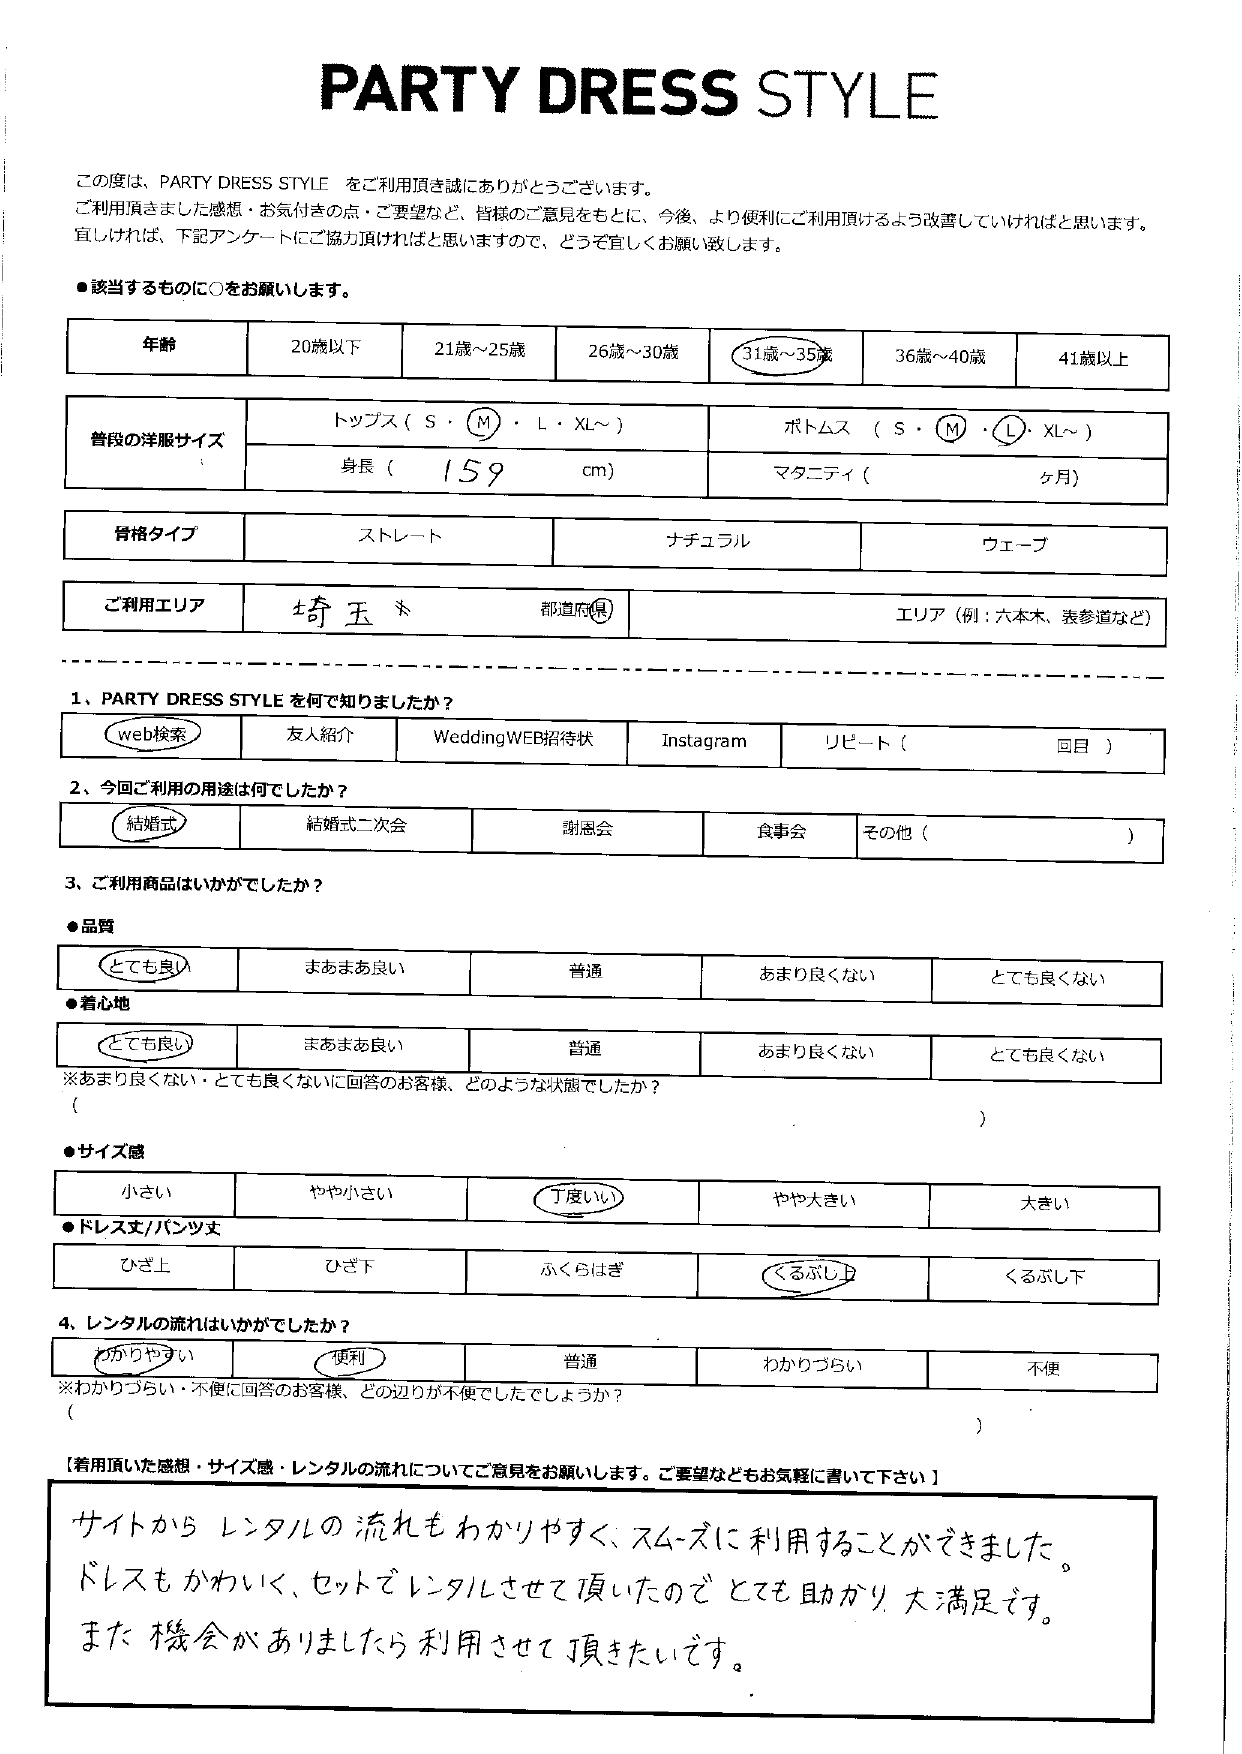 PARTY DRESS STYLE
この度は、PARTY DRESS STYLE をご利用頂き誠にありがとうございます。
ご利用頂きました感想・お気付きの点・ご要望など、皆様のご意見をもとに、今後、より便利にご利用頂けるよう改善していければと思います。
宜しければ、下記アンケートにご協力頂ければと思いますので、どうぞ宜しくお願い致します。
●該当するものに○をお願いします。
年齢 20歳以下 21歳～25歳 26歳～30歳 31歳～35歳 36歳～40歳 41歳以上
普段の洋服サイズ トップス ( S ・ M ・ L ・ XL～ ) ボトムス ( S ・ M ・ L ・ XL～ )
身長 ( 159 cm) マタニティ ( ヶ月)
骨格タイプ ストレート ナチュラル ウェーブ
ご利用エリア 埼玉 都道府県 エリア（例：六本木、表参道など）
1、PARTY DRESS STYLE を何で知りましたか？
web検索 友人紹介 WeddingWEB招待状 Instagram リピート ( 回目 )
2、今回ご利用の用途は何でしたか？
結婚式 結婚式二次会 謝恩会 食事会 その他 ( )
3、ご利用商品はいかがでしたか？
●品質
とても良い まあまあ良い 普通 あまり良くない とても良くない
●着心地
とても良い まあまあ良い 普通 あまり良くない とても良くない
※あまり良くない・とても良くないに回答のお客様、どのような状態でしたか？
( )
●サイズ感
小さい やや小さい 丁度いい やや大きい 大きい
●ドレス丈/パンツ丈
ひざ上 ひざ下 ふくらはぎ くるぶし上 くるぶし下
4、レンタルの流れはいかがでしたか？
わかりやすい 便利 普通 わかりづらい 不便
※わかりづらい・不便に回答のお客様、どの辺りが不便でしたでしょうか？
( )
【着用頂いた感想・サイズ感・レンタルの流れについてご意見をお願いします。ご要望などもお気軽に書いて下さい 】
サイトから レンタルの 流れも わかりやすく、スムーズに 利用することができました。
ドレスも かわいく、セットで レンタルさせて 頂いたので とても 助かり 大満足です。
また 機会が ありましたら 利用させて 頂きたいです。